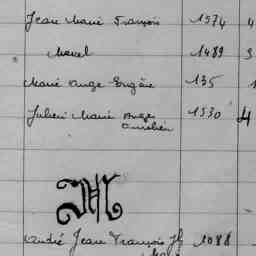 Jean Marie François 1574 4
Marcel 1489 3
Marie Ange Eugène 135 1
Julien Marie Ange 1530 4
Aurelien
M
André Jean François 1088